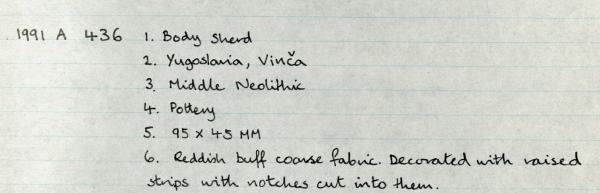 1991 A 436 1. Body sherd
2. Yugoslavia, Vinča
3. Middle Neolithic
4. Pottery
5. 95 x 45 MM
6. Reddish buff coarse fabric. Decorated with raised
strips with notches cut into them.